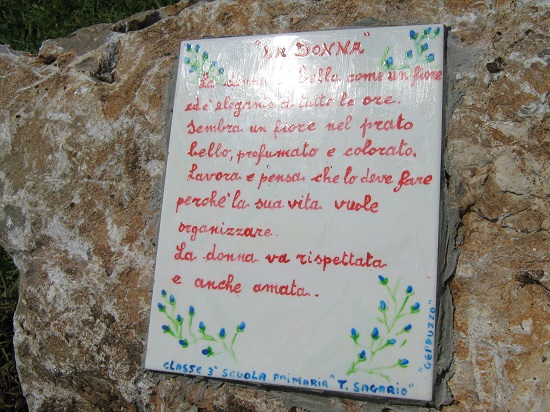 "LA DONNA"
La donna è bella come un fiore
ed è elegante a tutte le ore.
Sembra un fiore nel prato
bello, profumato e colorato.
Lavora e pensa che lo deve fare
perché la sua vita vuole
organizzare.
La donna va rispettata
e anche amata.
CLASSE 3ª SCUOLA PRIMARIA "T. SAGARIO"
"GERPUZZO"